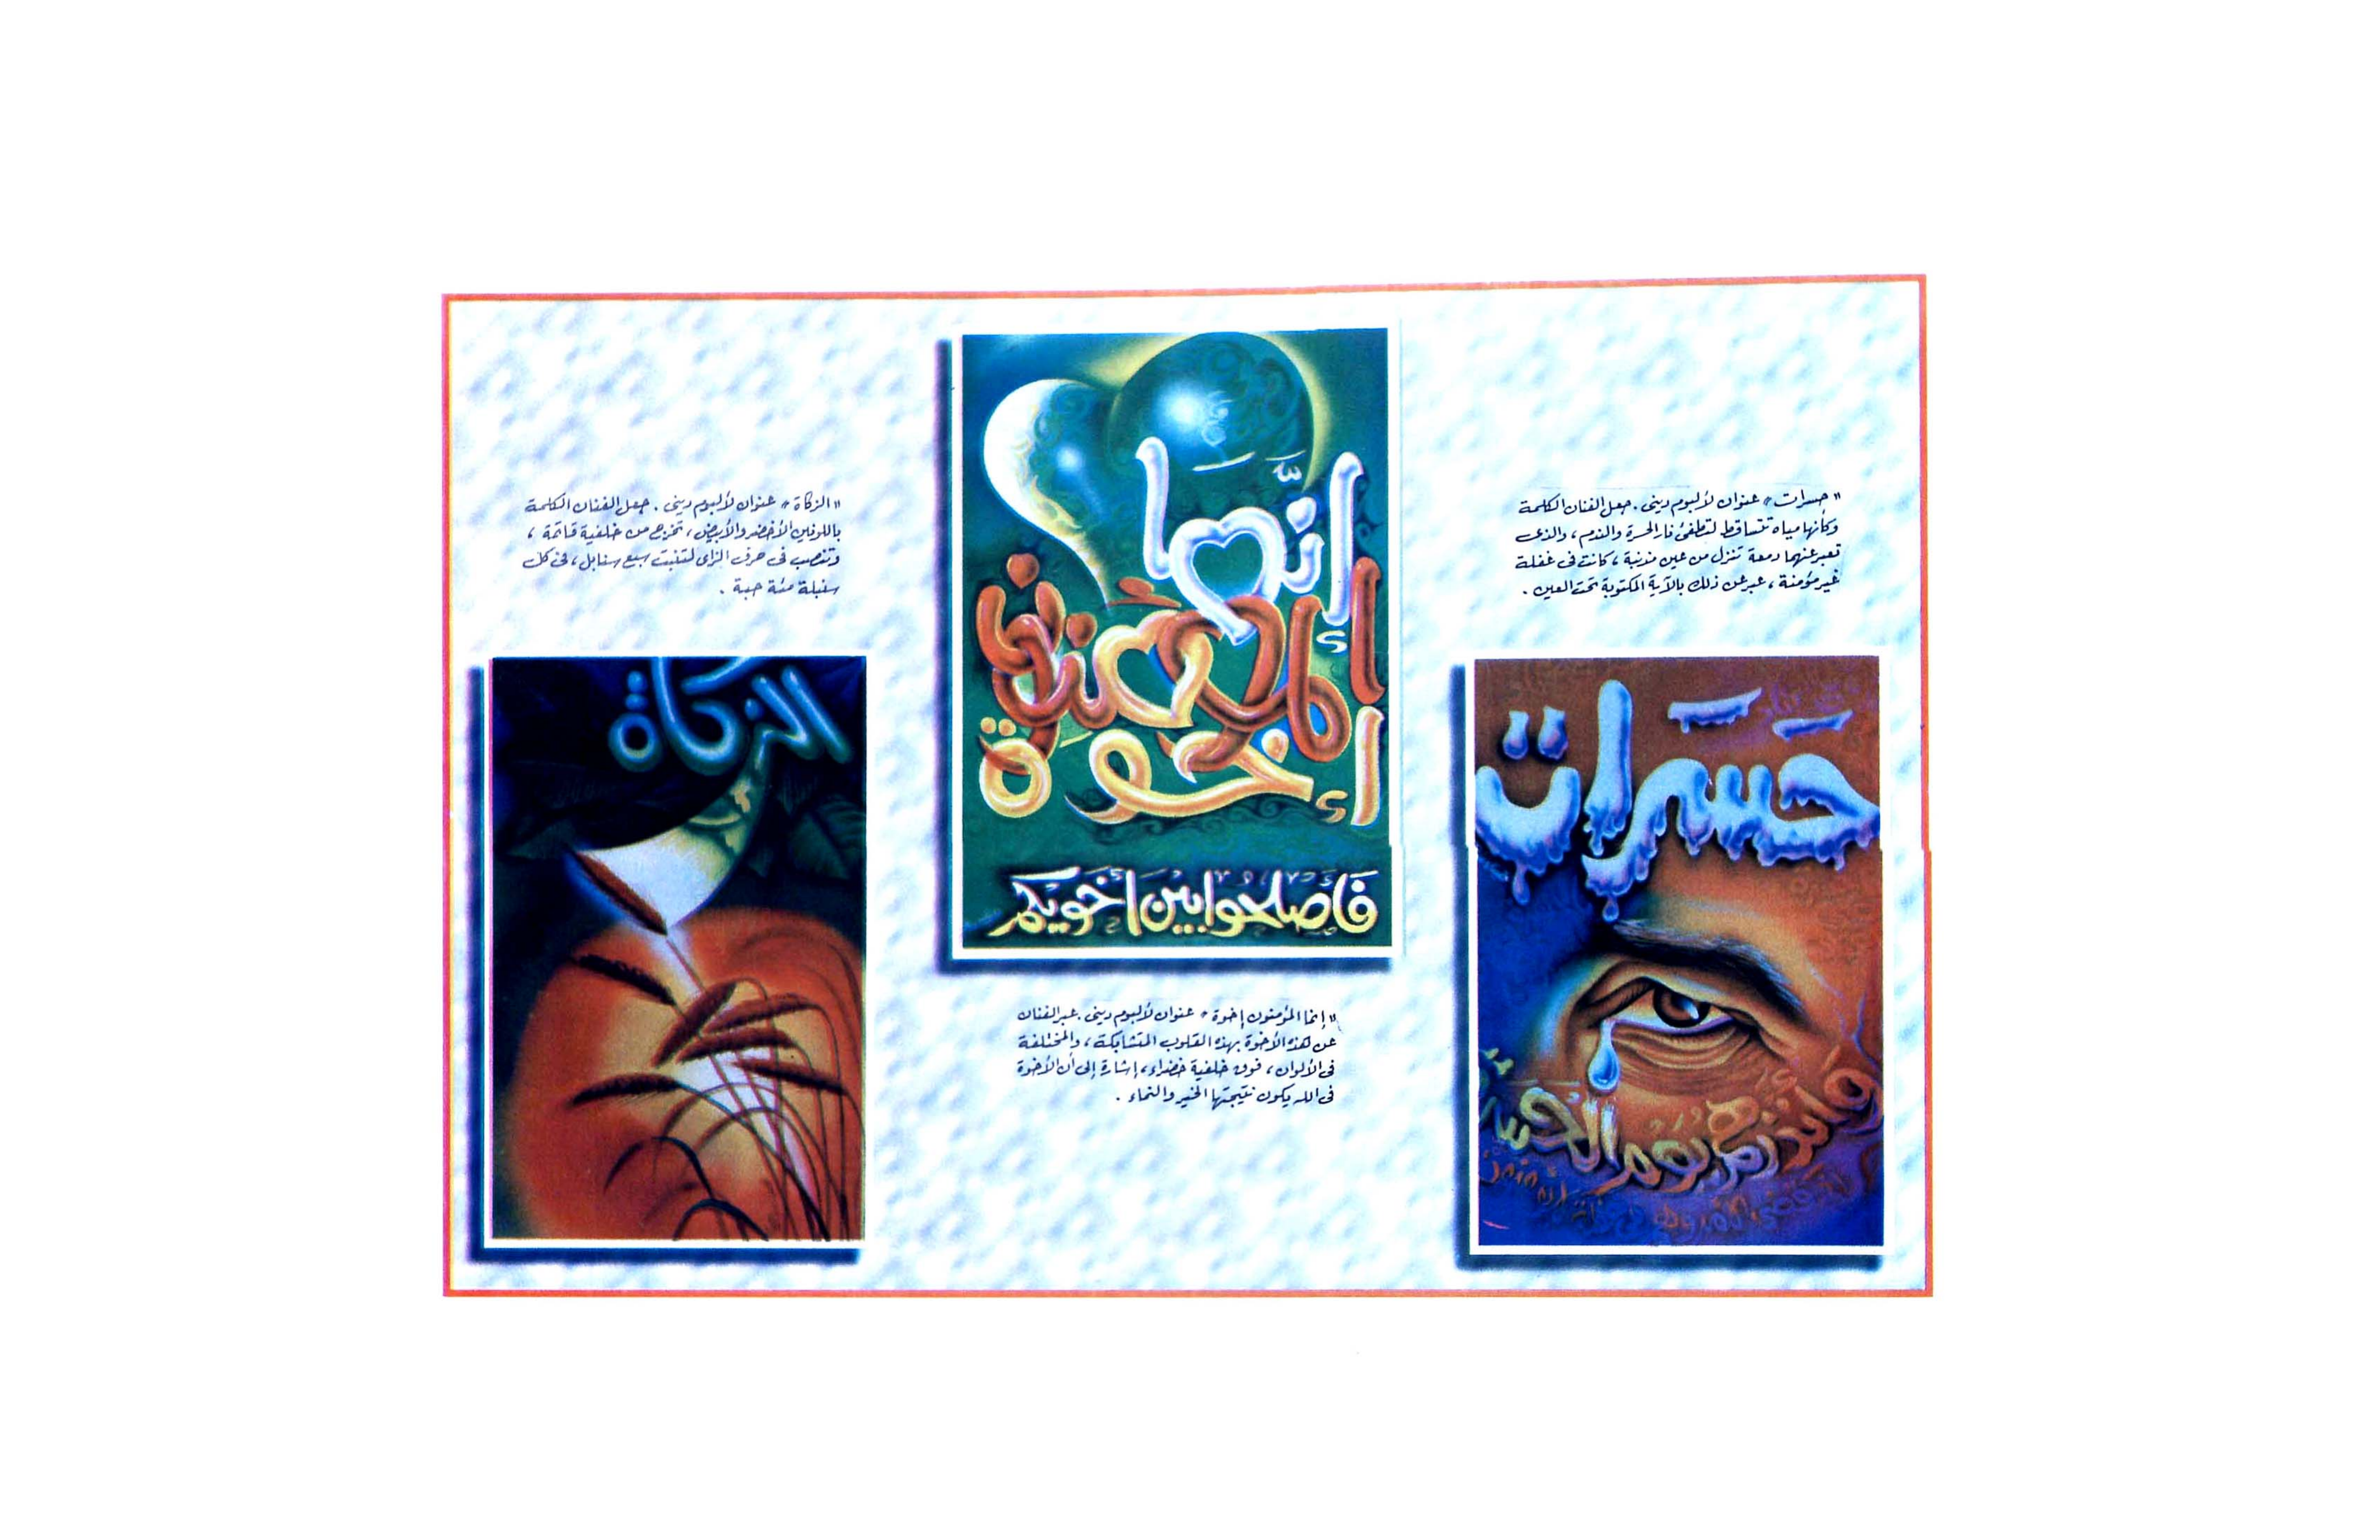 "حسرات" عنوان لألبوم دينى . جعل الفنان الكلمة
وكأنها مياه تتساقط لتطفئ نار الحسرة والندم ، والذى
تعبر عنهما دمعة تنزل من عين مذنبة ، كانت فى غفلة
غير مؤمنة ، عبر عن ذلك بالآية المكتوبة تحت العين .
حَسَرات
وأنذرهم يوم الحسرة
إنّما
المؤمنون
إخوة
فَأَصلحوا بين أخويكم
"إنما المؤمنون إخوة" عنوان لألبوم دينى . عبر الفنان
عن هذه الأخوة بهذه القلوب المتشابكة ، والمختلفة
فى الألوان ، فوق خلفية خضراء ، إشارة إلى أن الأخوة
فى الله يكون نتيجتها الخير والنماء .
"الزكاة" عنوان لألبوم دينى . جعل الفنان الكلمة
باللونين الأخضر والأبيض ، تخرج من خلفية قاتمة ،
وتنصب فى حرف الزاى لتنبت سبع سنابل ، فى كل
سنبلة مئة حبة .
الزكاة